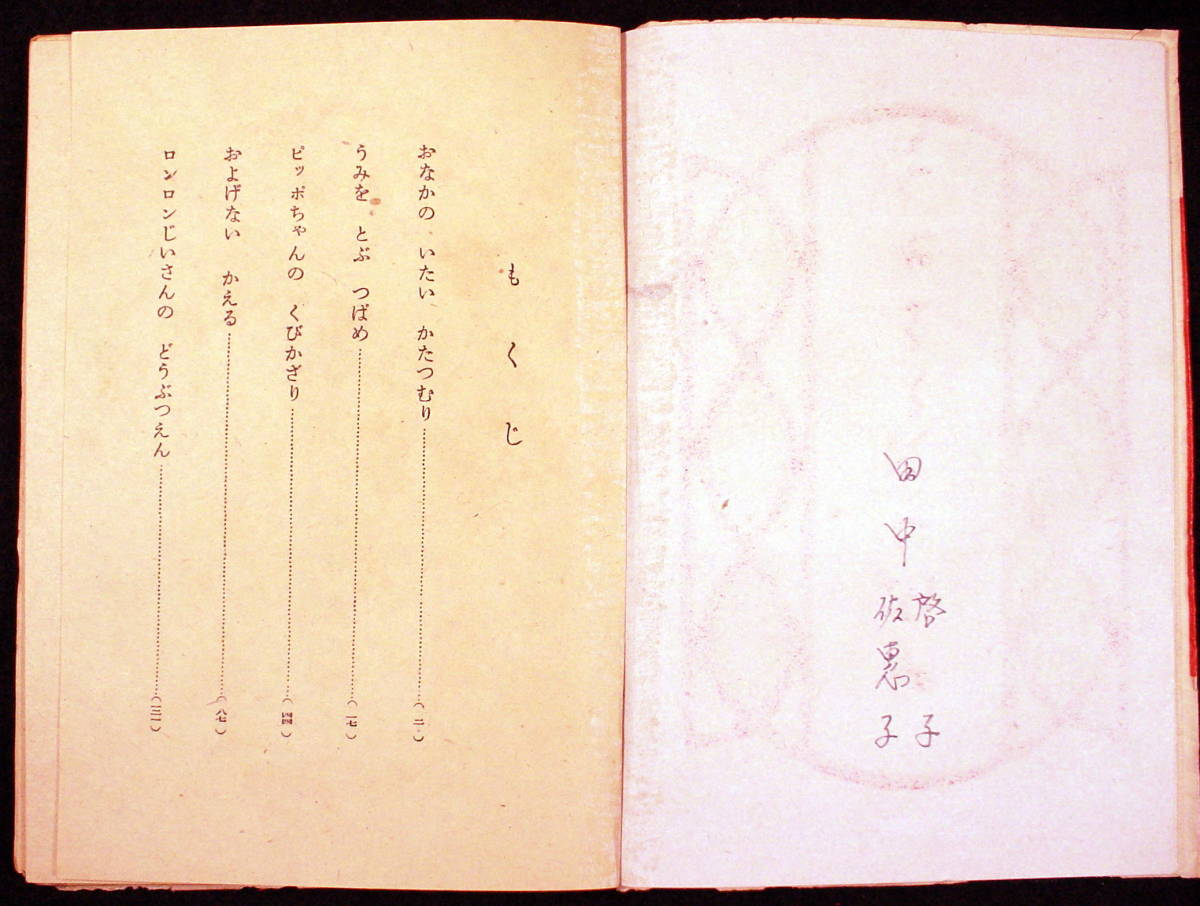 田中
啓子
佐恵子
もくじ
おなかの いたい かたつむり……(二)
うみを とぶ つばめ……(一七)
ピッポちゃんの くびかざり……(四四)
およげない かえる……(八七)
ロンロンじいさんの どうぶつえん……(一三一)